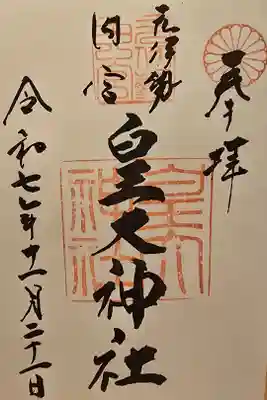 奉拝
元伊勢
内宮
皇大神社
令和七年十一月二十一日